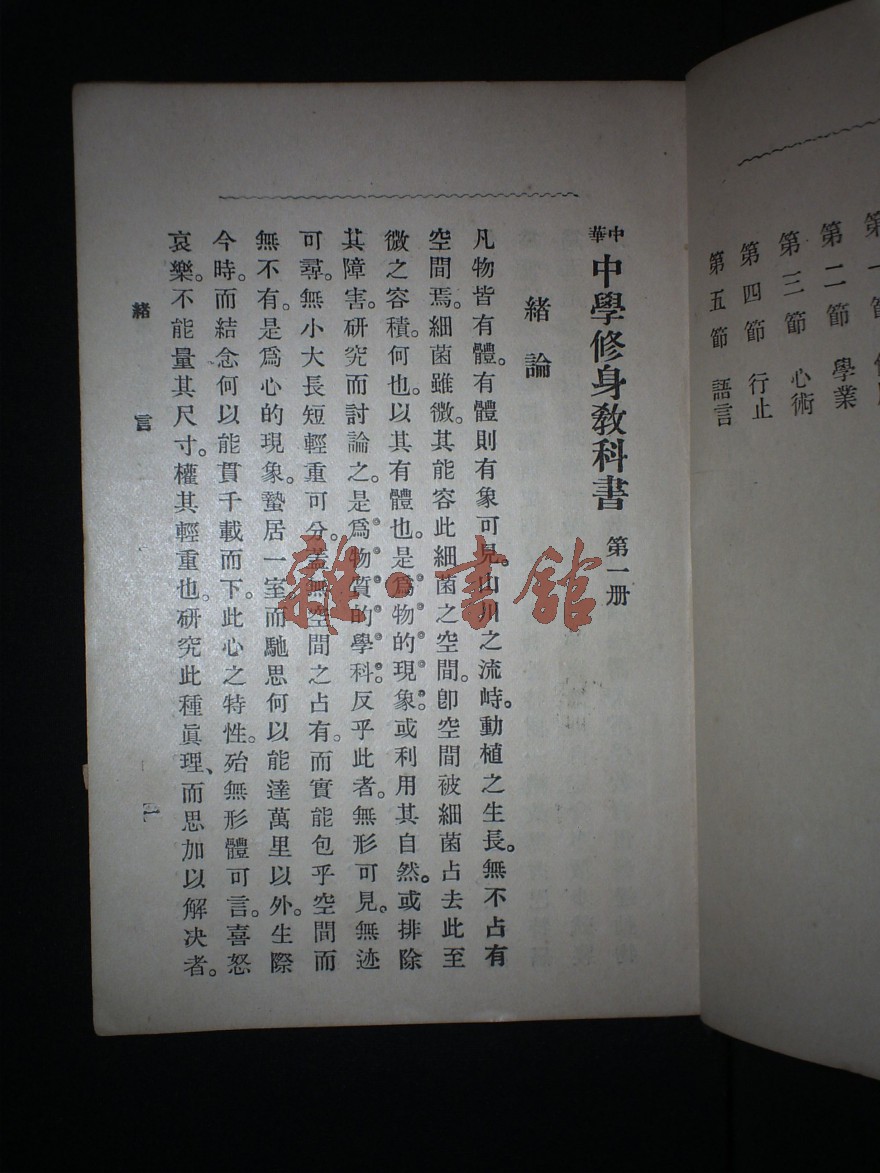 第二節 學業
第三節 心術
第四節 行止
第五節 語言
中華 中學修身教科書 第一册
緒論
凡物皆有體。有體則有象可見。山川之流峙。動植之生長。無不占有
空間焉。細菌雖微。其能容此細菌之空間。卽空間被細菌占去此至
微之容積。何也。以其有體也。是爲物的現象。或利用其自然。或排除
其障害。研究而討論之。是爲物質的學科。反乎此者。無形可見。無迹
可尋。無小大長短輕重可分。蓋無空間之占有。而實能包乎空間而
無不有。是爲心的現象。蟄居一室。而馳思何以能達萬里以外。生際
今時。而結念何以能貫千載而下。此心之特性。殆無形體可言。喜怒
哀樂。不能量其尺寸。權其輕重也。研究此種眞理、而思加以解決者。
緒言
雜·書館